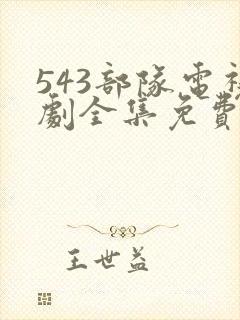 543部隊電視
劇全集免費
王世益